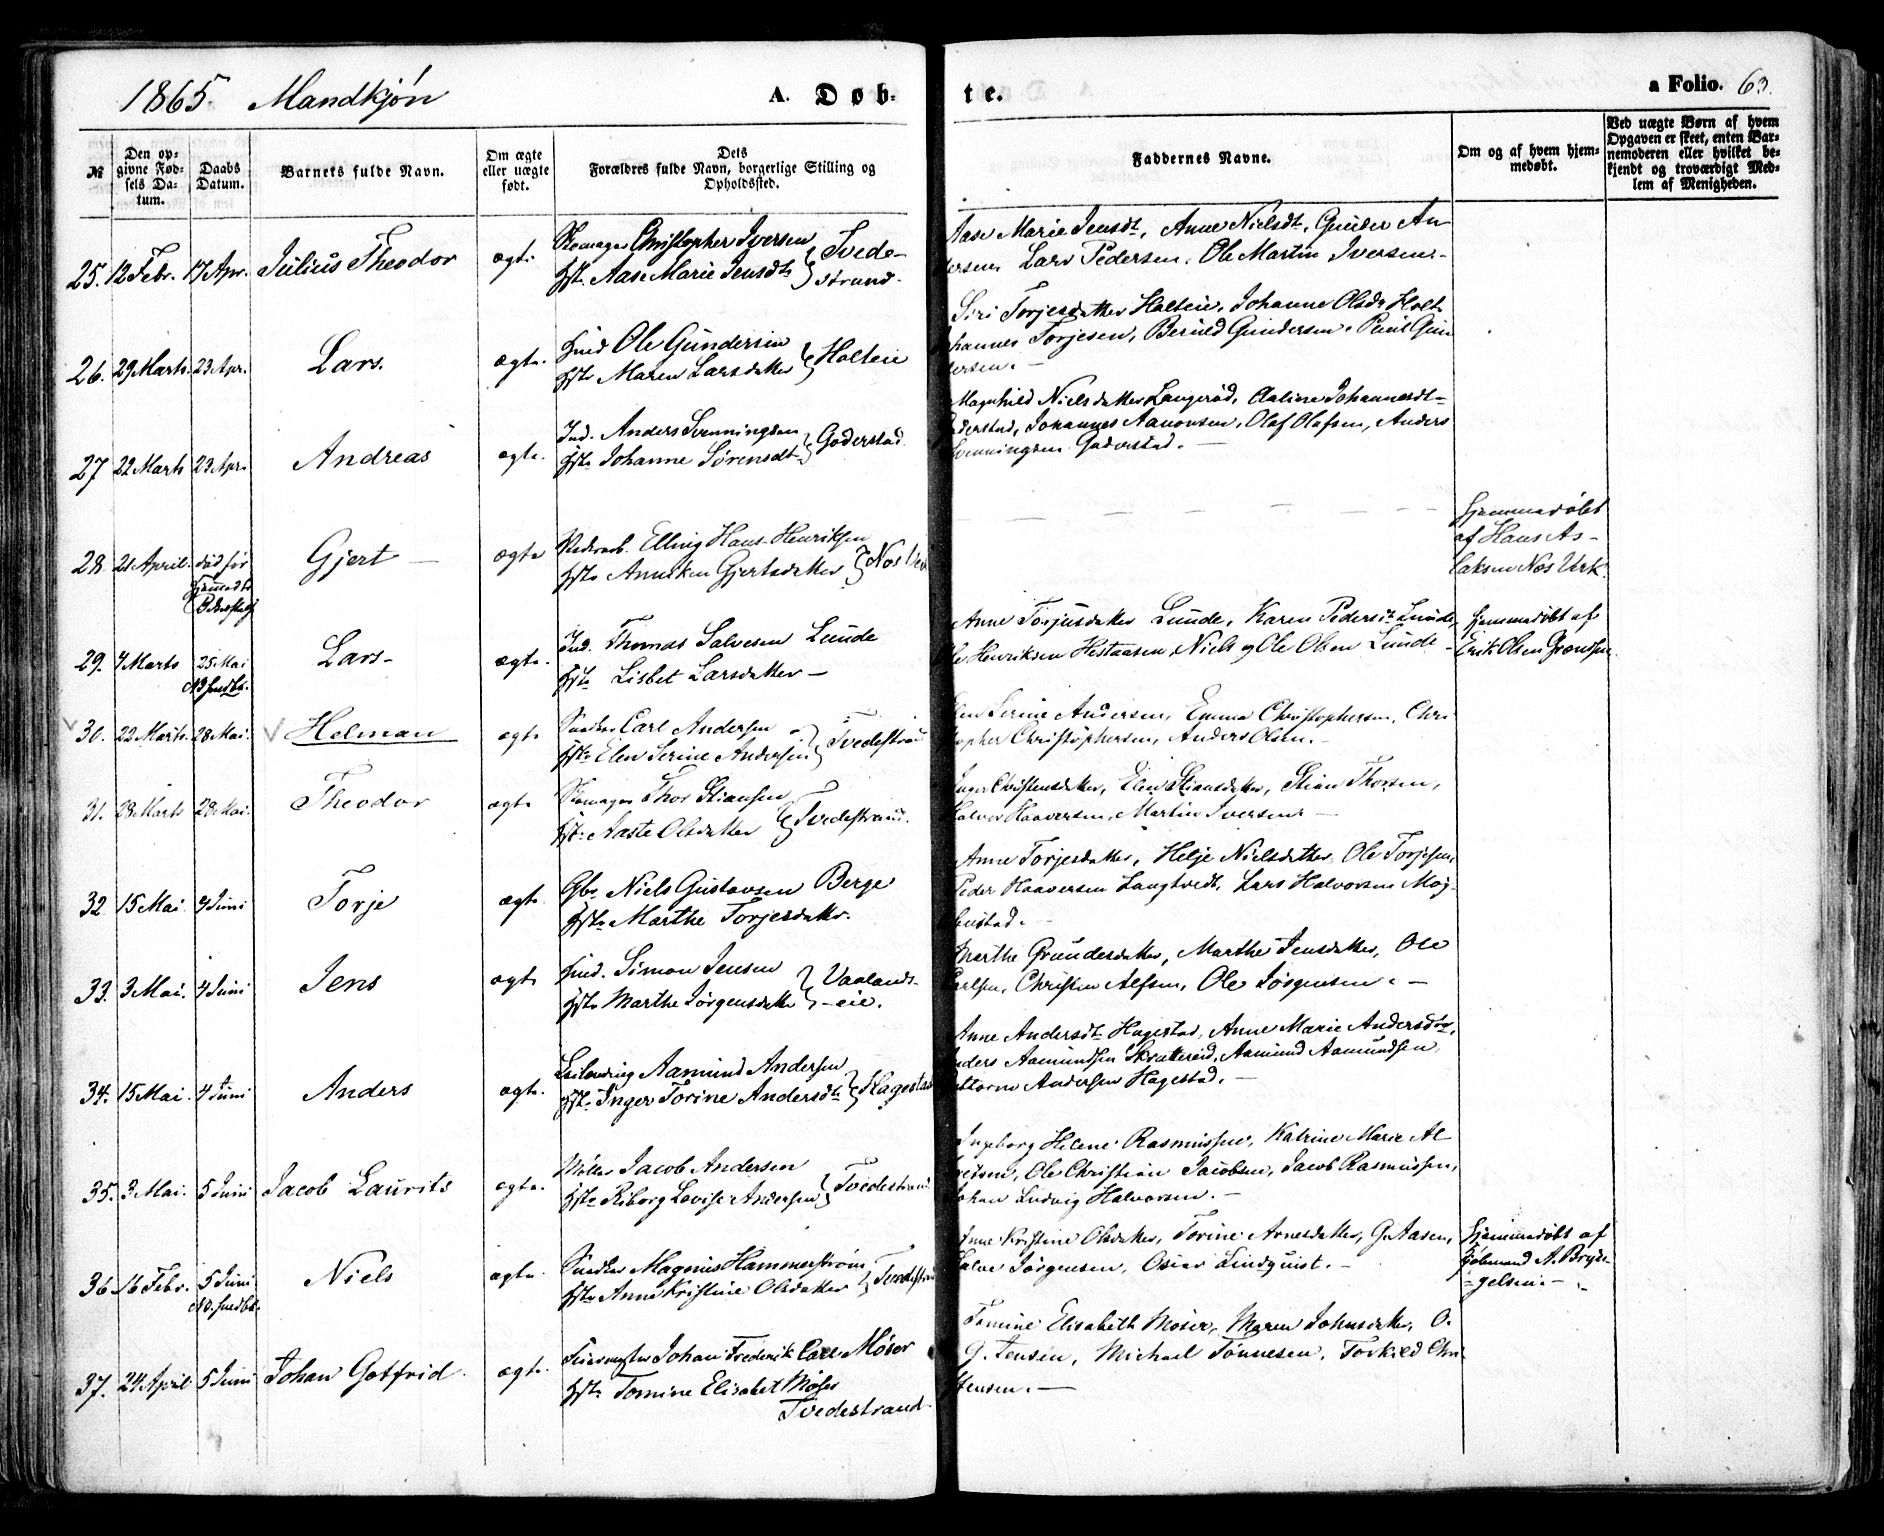 1865. Mandkjøn
A. Døb-
te.
a Folio. 63.
№
Den op-
givne Fød-
sels Da-
tum.
Daabs
Datum.
Barnets fulde Navn.
Om ægte
eller uægte
født.
Dets
Forældres fulde Navn, borgerlige Stilling og
Opholdssted.
Faddernes Navne.
Om og af hvem hjem-
medøbt.
Ved uægte Børn af hvem
Opgaven er skeet, enten Bar-
nemoderen eller hvilket be-
kjendt og troværdigt Med-
lem af Menigheden.
25. 12 Febr. 17 Apr. Julius Theodor ægte
Skomager Christopher Iversen
Hst. Aase Marie Jensdt.
Tvede-
strand.
Aase Marie Jensdt, Anne Nielsdt, Gunder An
dersen Lars Pedersen, Ole Martin Iversen.-
26. 29 Marts. 23 Apr. Lars. ægte.
Husmd Ole Gundersen
Hst. Maren Larsdatter
Holteie
Siri Torjesdatter Holteie, Johanne Olsdr Holt
Johannes Torjesen, Beruld Gundersen, Poul Gun
dersen. -
27 22 Marts 23 Apr. Andreas ægte.
Ind. Anders Svenningsen
Hst. Johanne Sørensdt
Goderstad
Magnhild Nielsdatter Langerød, Aaline Johannesdt-
Goderstad, Johannes Aanonsen, Olaf Olafsen, Anders
Svenningsen Goderstad. -
28. 21 April. død før
Hjemmedb.
Gjert - ægte
Elling Hans Henriksen
Hst. Anneken Gjertsdatter
Næs Verk
Hjemmedøbt
af Hans As-
laksen Næs Verk.
29. 7 Marts 25 Mai
Lars- ægte.
Ind. Thomas Salvesen Lunde
Hst. Lisbet Larsdatter -
Anne Torjusdatter Lunde, Karen Pedersdt. Lunde,
Ole Henriksen Hestaasen, Niels og Ole Olsen Lunde -
Hjemmedøbt af
Erik Olsen
30. 22 Marts. 28 Mai. Helman ægte
Snedker Carl Andersen
Hst. Elen Serine Andersen
Tvedestrand
Elen Serine Andersen, Emma Christophersen, Chri
stopher Christophersen, Anders Olsen. -
31. 28 Marts 28 Mai. Theodor ægte
Skomager Thor Stiansen
Hst. Aaste Olsdatter
Tvedestrand.
Inger Christensdatter, Elen Stiansdatter, Stian Thorsen,
Halvor Haaversen, Martin Iversen. -
32 15 Mai 4 Juni Torje ægte
Gbr. Niels Gustavsen Berge
Hst. Marthe Torjesdatter.
Anne Torjesdatter, Helje Nielsdatter, Ole Torjesen,
Peder Haaversen Langtvedt, Lars Halvorsen Mag-
nestad. -
33. 3 Mai. 4 Juni Jens ægte
Husmd. Simon Jensen
Hst. Marthe Jørgensdatter
Vaalands-
- eie.
Marthe Gundersdatter, Marthe Jensdatter, Ole
Carlsen, Christen Alfsen, Ole Jørgensen. -
34. 15 Mai 4 Juni Anders ægte.
Leilænding Aamund Andersen
Hst. Inger Torine Andersdt.
Hagestad
Anne Andersdt Hagestad, Anne Marie Andersdtr,
Anders Aamundsen Skrattereid, Aamund Aamundsen,
Andersen Hagestad. -
35. 3 Mai. 5 Juni Jacob Laurits ægte.
Møller Jacob Andersen
Hst. Riborg Lovise Andersen
Tvedestrand
Ingeborg Helene Rasmussen, Katrine Marie Al
bretsen, Ole Christian Jacobsen, Jacob Rasmussen,
Johan Ludvig Halvorsen. -
36 16 Febr. 5 Juni
Niels ægte.
Snedker Magnus Hammerstrøm
Hst. Anne Kristine Olsdatter
Tvedestrand
Anne Kristine Olsdatter, Torine Arnesdatter, G. Aasen,
Salve Jørgensen, Oscar Lindquist. -
Hjemmedøbt af
Gjødemand A. Bryde-
- gelsen. -
37. 24 April 5 Juni Johan Gotfrid. ægte
Johan Frederik Carl Møser
Hst. Tomine Elisabet Møser
Tvedestrand
Tomine Elisabeth Moser, Maren Johnsdatter, O.
G. Jensen, Michael Tønnesen, Torkild Chri
stensen. -